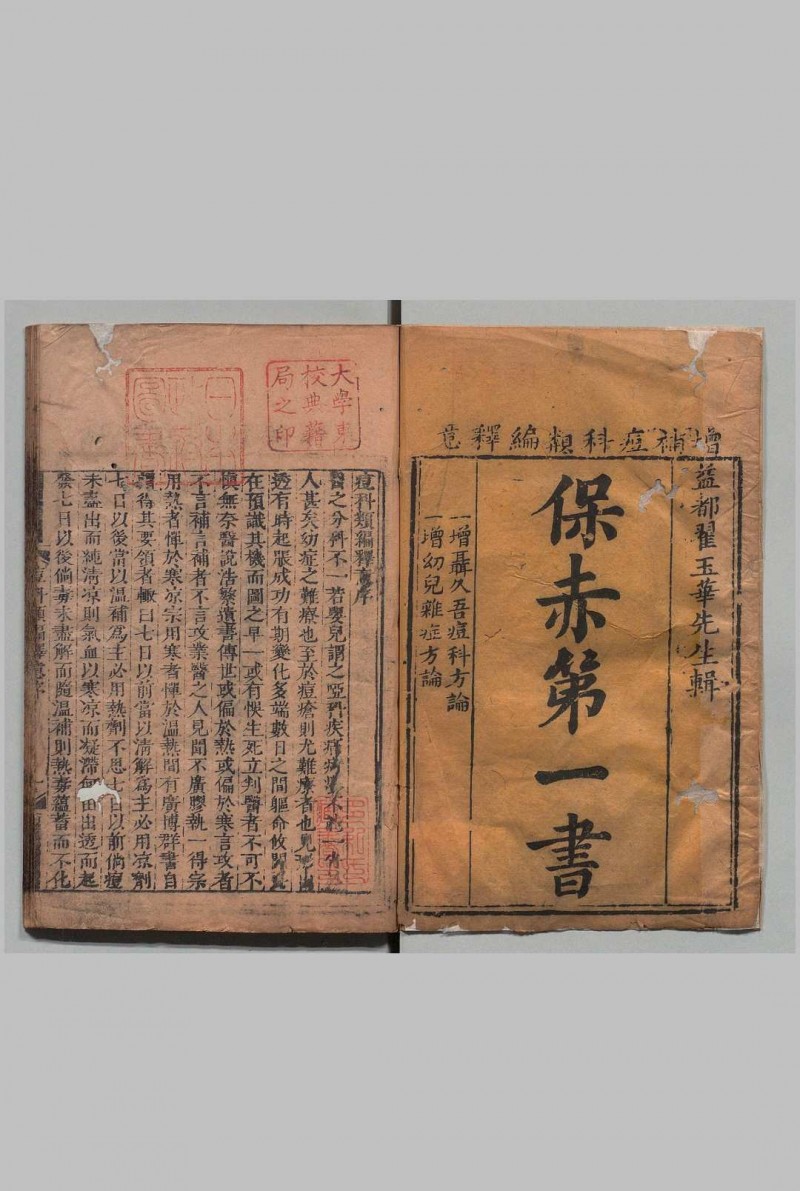 增補痘科類編釋意
益都翟玉華先生輯
保赤第一書
一增聶久吾痘科方論
一增幼兒雜症方論
大學東
校典籍
局之印
痘科類編釋意序
醫之分科不一若嬰兒謂之啞科疾痛疴癢不
人甚矣幼症之難療也至於痘瘡則尤難療者也見形
透有時起脹成功有期變化多端數日之間軀命攸關
在預識其機而圖之早一或有悞生死立判醫者不可不
慎無奈醫說浩繁遺書傳世或偏於熱或偏於寒言攻者
不言補言補者不言攻業醫之人見聞不廣膠執一得宗
用熱者憚於寒凉宗用寒者憚於温熱間有廣博群書自
謂得其要領者輙曰七日以前當以清解為主必用凉劑
七日以後當以温補為主必用熱劑不思七日以前倘痘
未盡出而純清凉則氣血以寒凉而凝滯何由出透而起
發七日以後倘毒未盡解而驟温補則熱毒蘊蓄而不化
痘科類編釋意序